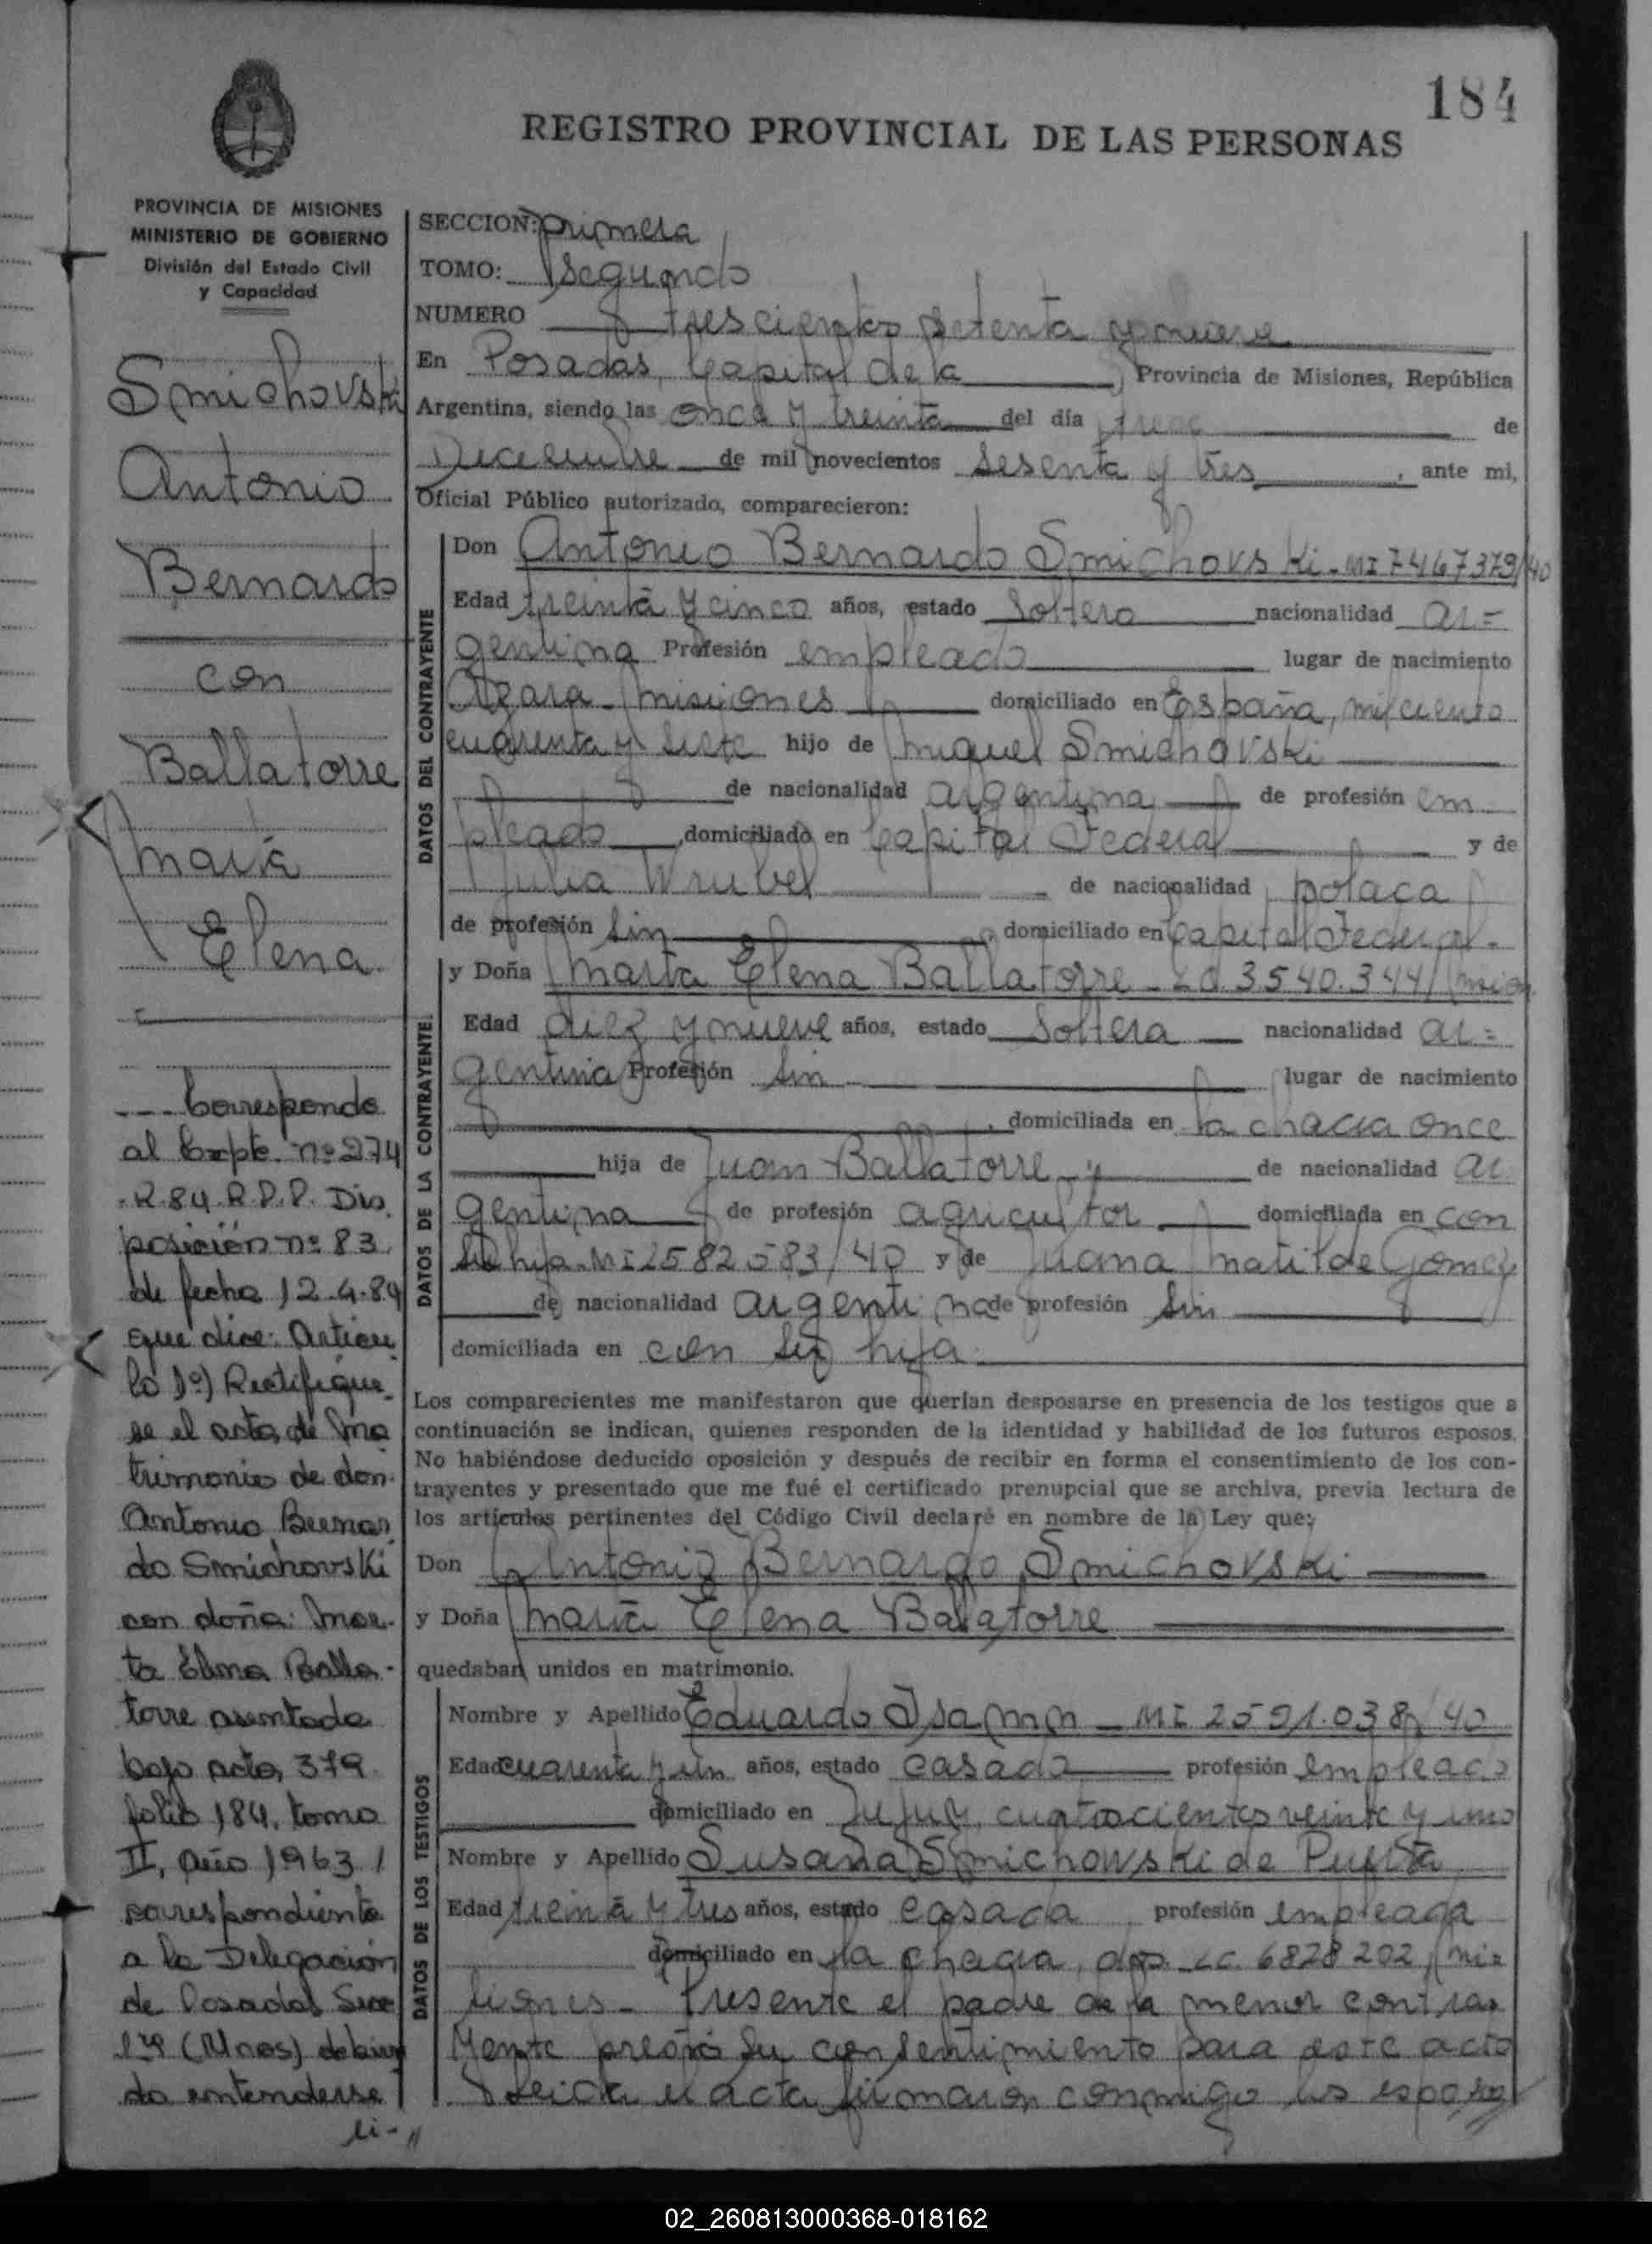 184
REGISTRO PROVINCIAL DE LAS PERSONAS
PROVINCIA DE MISIONES
MINISTERIO DE GOBIERNO
División del Estado Civil
y Capacidad
Smichovski
Antonio
Bernardo
con
Ballatorre
Marta
Elena
--- Corresponde
al Expte. nº 274
-R-84. R.P.P. Dis
posición nº 83
de fecha 12.4.84
que dice: Artícu
lo 1º) Rectifíque
se el acta de Ma
trimonio de don
Antonio Bernar
do Smichovski
con doña: Mar-
ta Elena Balla-
torre asentada
bajo acta 379
folio 184, tomo
II, año 1963
correspondiente
a la Delegación
de Posadas Secc
1ra (Mnes) debien
do entenderse
SECCION: Primera
TOMO: Segundo
NUMERO trescientos setenta y nueve
En Posadas, Capital de la Provincia de Misiones, República
Argentina, siendo las once y treinta del día trece de
Diciembre de mil novecientos sesenta y tres, ante mi,
Oficial Público autorizado, comparecieron:
DATOS DEL CONTRAYENTE
Don Antonio Bernardo Smichovski - MI 7467379/40
Edad treinta y cinco años, estado Soltero nacionalidad ar=
gentina Profesión empleado lugar de nacimiento
Azara - Misiones domiciliado en España, mil ciento
cuarenta y siete hijo de Miguel Smichovski
de nacionalidad argentina de profesión em
pleado, domiciliado en Capital Federal y de
Julia Wrubel de nacionalidad polaca
de profesión sin domiciliado en Capital Federal.
DATOS DE LA CONTRAYENTE
y Doña Marta Elena Ballatorre - L.C. 3.540.344/Mision
Edad diez y nueve años, estado Soltera nacionalidad ar=
gentina Profesión sin lugar de nacimiento
, domiciliada en la chacra once
hija de Juan Ballatorre de nacionalidad ar
gentina de profesión agricultor domiciliada en con
su hija - MI 2582583/40 y de Juana Matilde Gomez
de nacionalidad argentina de profesión sin
domiciliada en con su hija.
Los comparecientes me manifestaron que querían desposarse en presencia de los testigos que a
continuación se indican, quienes responden de la identidad y habilidad de los futuros esposos.
No habiéndose deducido oposición y después de recibir en forma el consentimiento de los con-
trayentes y presentado que me fué el certificado prenupcial que se archiva, previa lectura de
los artículos pertinentes del Código Civil declaré en nombre de la Ley que:
Don Antonio Bernardo Smichovski
y Doña Marta Elena Ballatorre
quedaban unidos en matrimonio.
DATOS DE LOS TESTIGOS
Nombre y Apellido Eduardo - MI 2591.038/40
Edad cuarenta y un años, estado casado profesión empleado
domiciliado en Jujuy, cuatrocientos veinte y uno
Nombre y Apellido Susana Smichowski de
Edad treinta y tres años, estado casada profesión empleada
domiciliado en la chacra, dos - LC. 6828202/Mi=
siones - Presente el padre de la menor contra=
yente prestó su consentimiento para este acto
Leída el acta firmaron conmigo los esposos
02_260813000368-018162